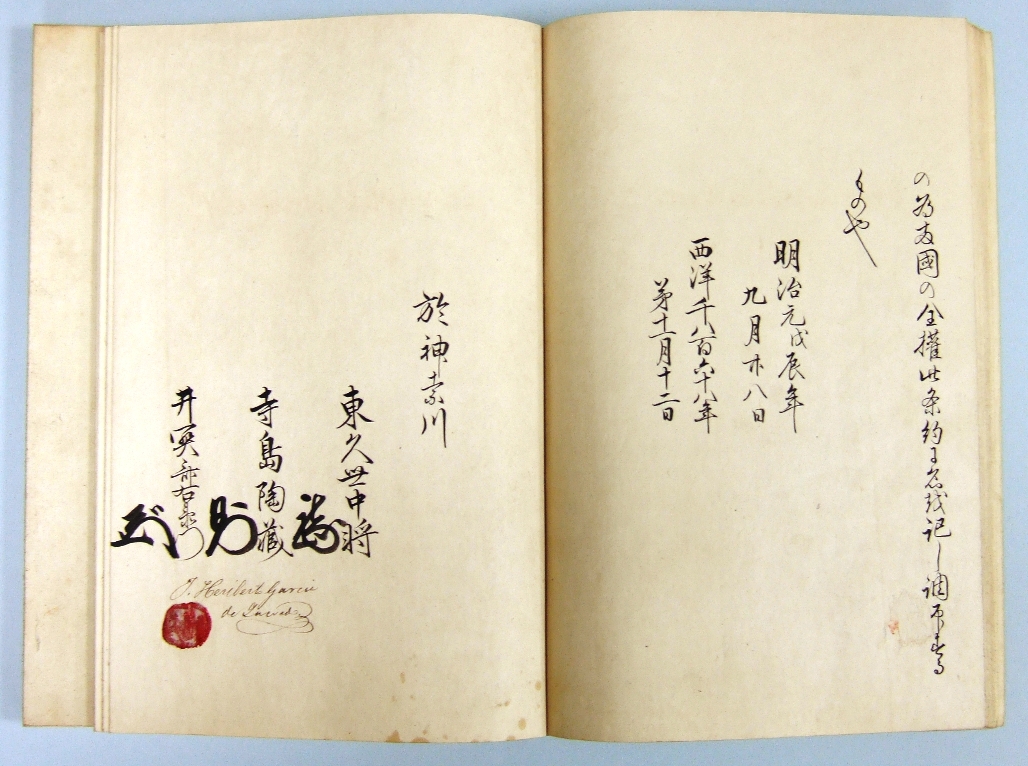 の為両國の全權此条約に名を記し調印する
ものや
明治元戊辰年
九月廿八日
西洋千八百六十八年
第十一月十二日
於神奈川
東久世中將
寺島陶藏
井関斎右衛門
J. Heribert Garcia
de Quevedo